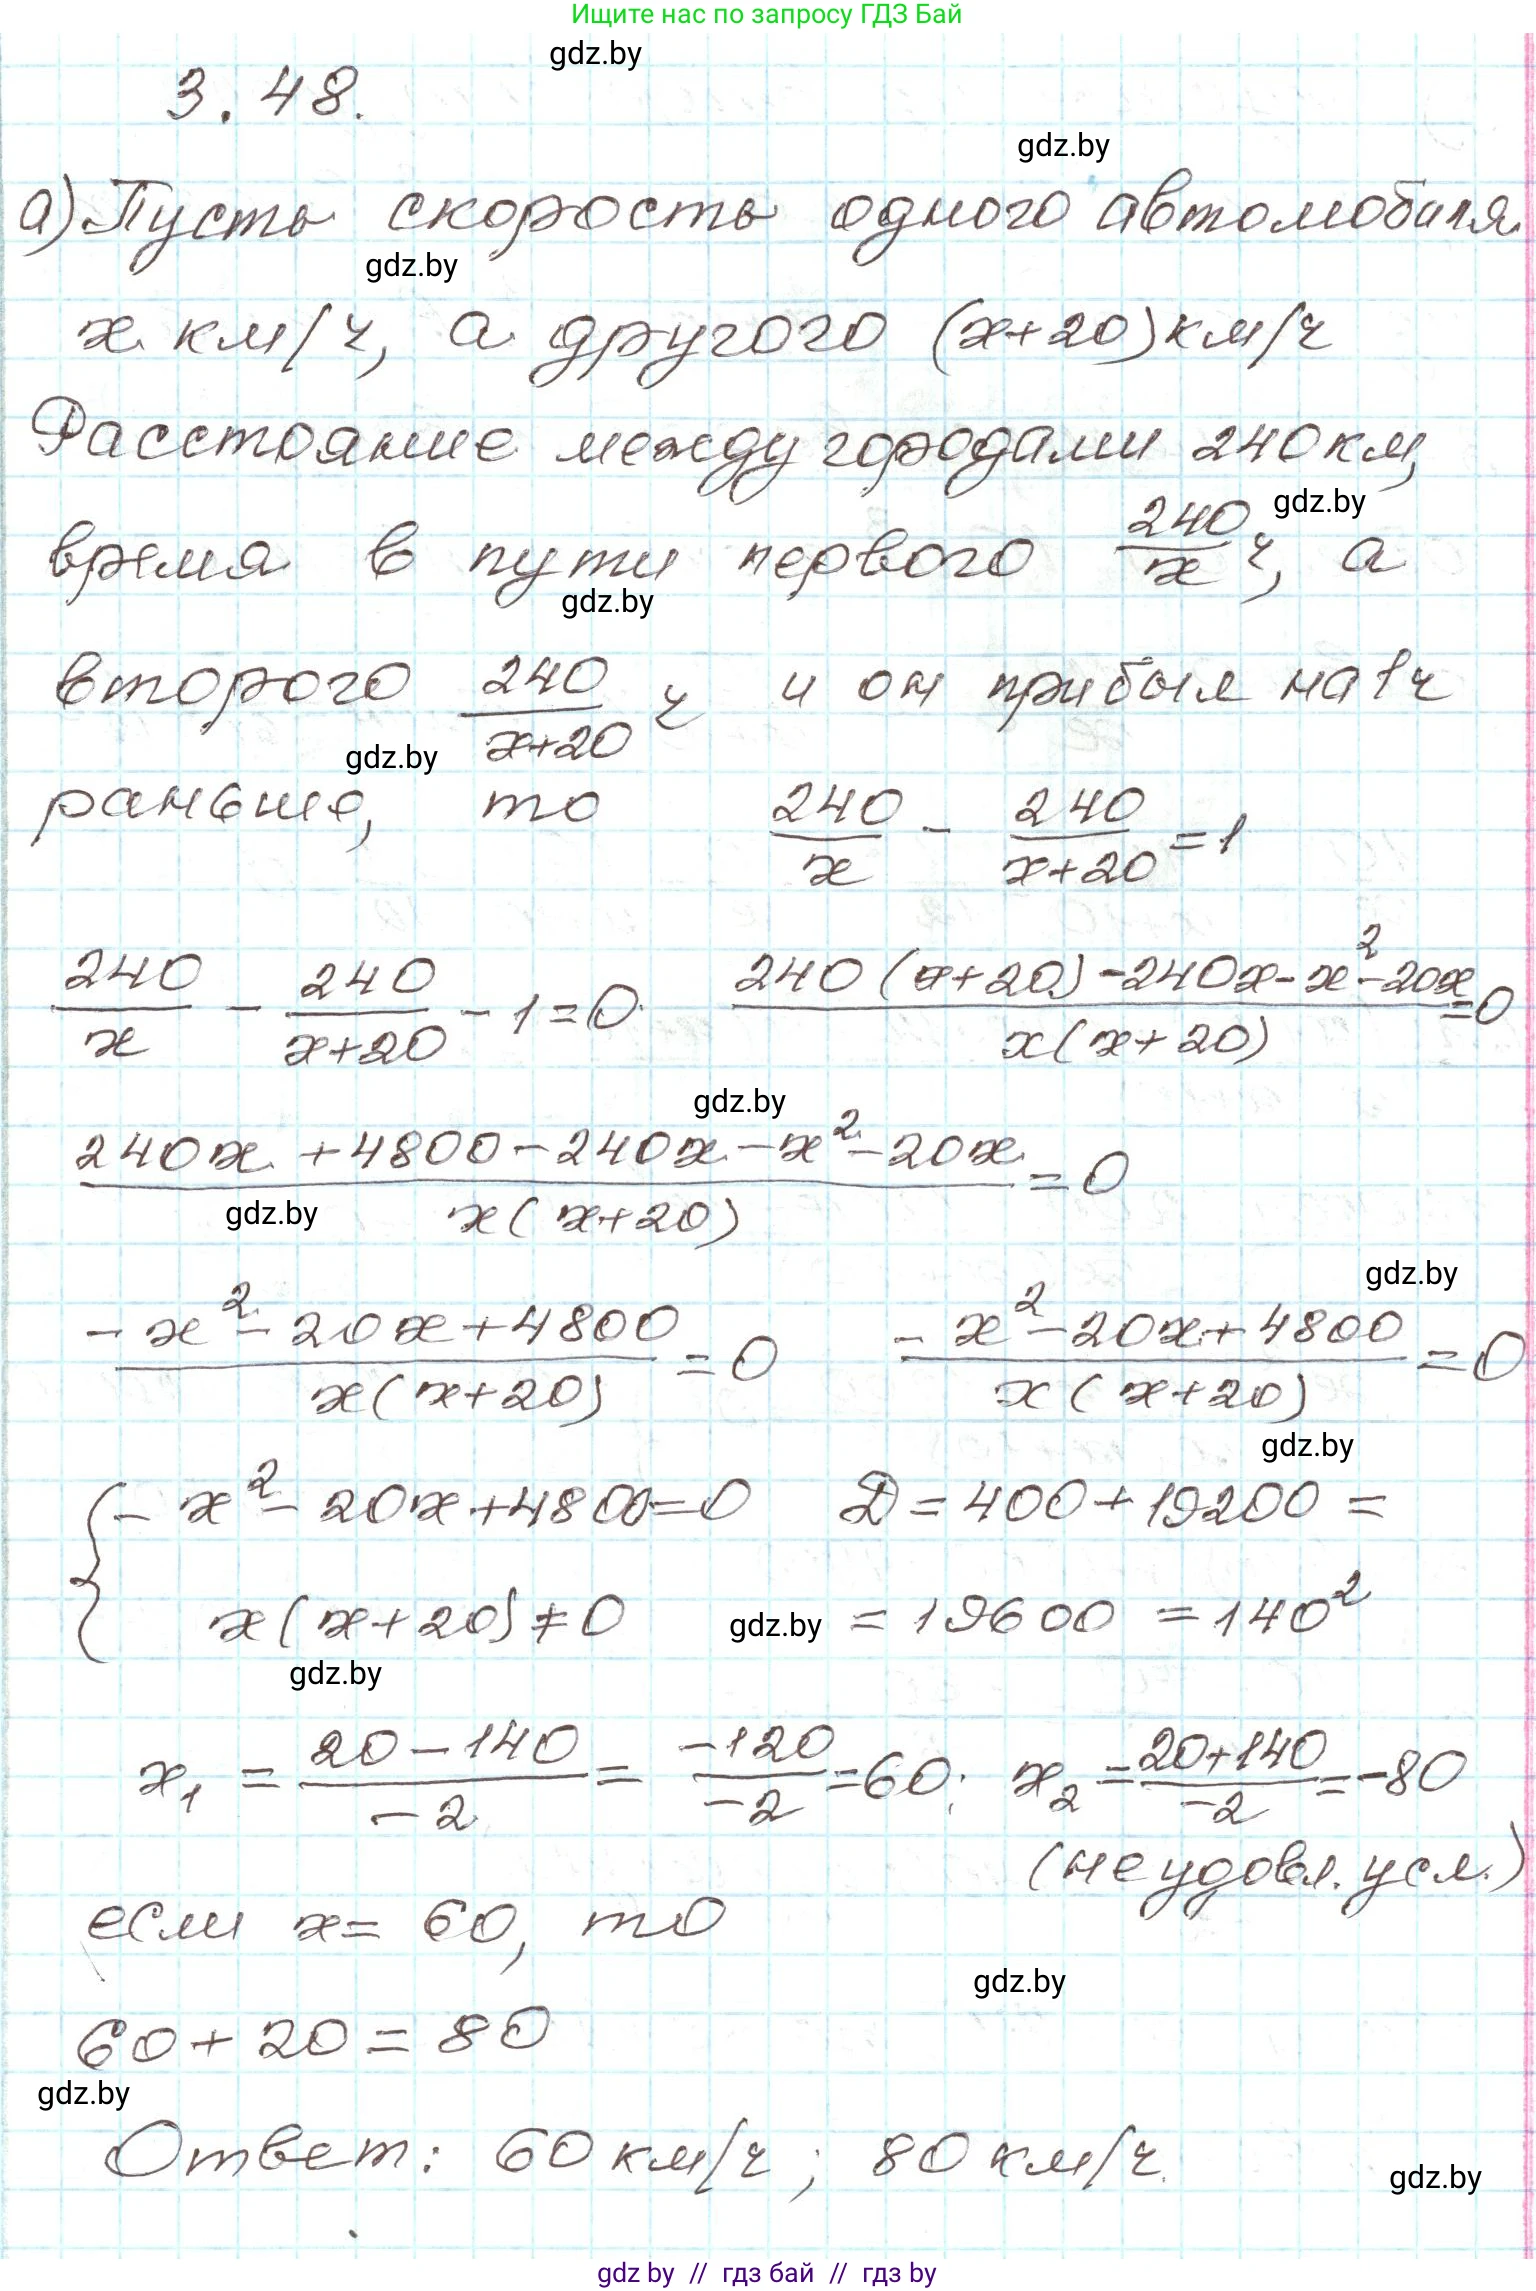 Ищите нас по запросу ГДЗ Бай
gdz.by
3.48.
gdz.by
а) Пусть скорость одного автомобиля
gdz.by
x км/ч, а другого (x+20) км/ч
Расстояние между городами 240 км,
gdz.by
время в пути первого 240/x ч, а
gdz.by
второго 240/(x+20) ч и он прибыл на 1 ч
gdz.by
раньше, то 240/x - 240/(x+20) = 1
240/x - 240/(x+20) - 1 = 0 (240(x+20) - 240x - x² - 20x)/(x(x+20)) = 0
gdz.by
(240x + 4800 - 240x - x² - 20x)/(x(x+20)) = 0
gdz.by
gdz.by
(-x² - 20x + 4800)/(x(x+20)) = 0 (-x² - 20x + 4800)/(x(x+20)) = 0
gdz.by
{ -x² - 20x + 4800 = 0 D = 400 + 19200 =
x(x+20) ≠ 0 gdz.by = 19600 = 140²
gdz.by
x₁ = (20 - 140)/(-2) = -120/-2 = 60; x₂ = (20+140)/(-2) = -80
(не удовл. усл.)
если x = 60, то
gdz.by
60 + 20 = 80
gdz.by
Ответ: 60 км/ч; 80 км/ч.
gdz.by
gdz by // гдз бай // гдз by